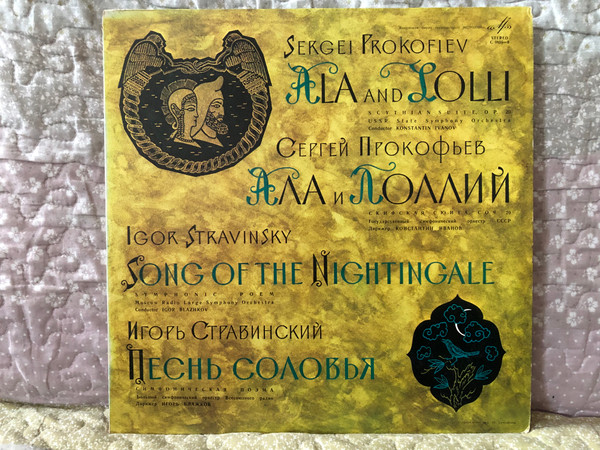 SERGEI PROKOFIEV
СТЕРЕО
ALA AND LOLLI
SCYTHIAN SUITE, OP. 20
USSR State Symphony Orchestra
Conductor KONSTANTIN IVANOV
СЕРГЕЙ ПРОКОФЬЕВ
АЛА И ЛОЛЛИЙ
СКИФСКАЯ СЮИТА, СОЧ. 20
Государственный симфонический оркестр СССР
Дирижер КОНСТАНТИН ИВАНОВ
IGOR STRAVINSKY
SONG OF THE NIGHTINGALE
SYMPHONIC POEM
Moscow Radio Large Symphony Orchestra
Conductor IGOR BLAZHKOV
ИГОРЬ СТРАВИНСКИЙ
ПЕСНЬ СОЛОВЬЯ
СИМФОНИЧЕСКАЯ ПОЭМА
Большой симфонический оркестр Всесоюзного радио
Дирижер ИГОРЬ БЛАЖКОВ